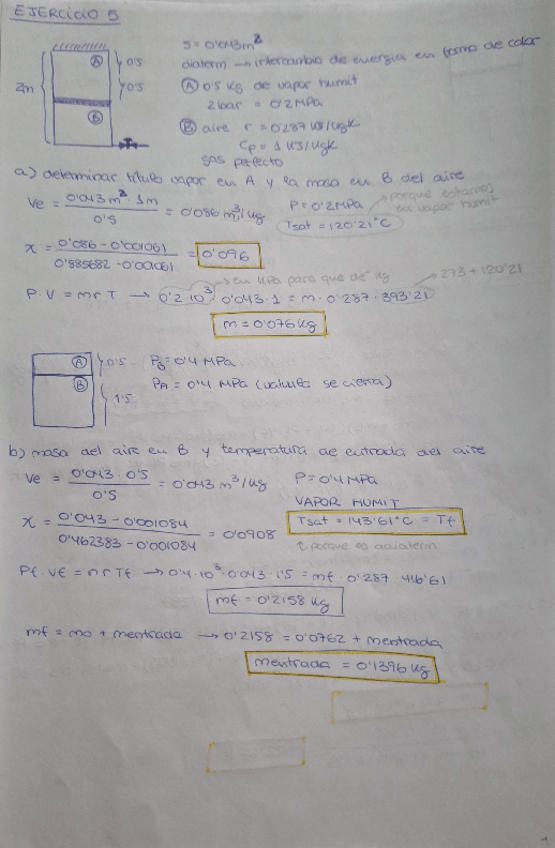 EJERCICIO 5
S = 0'043m²
diaterm → intercambio de energia en forma de calor
2m
A
0'5
0'5
B
Ⓐ 0'5 kg de vapor humit
2bar = 0'2 MPa
Ⓑ aire r = 0'287 KJ/kgK
Cp = 1 KJ/kgK
gas perfecto
a) determinar titulo vapor en A y la masa en B del aire
Ve = 0'043m² · 1m / 0'5 = 0'086 m³/kg
P = 0'2MPa
porque estamos en vapor humit
Tsat = 120'21°C
x = 0'086 - 0'001061 / 0'885682 - 0'001061 = 0'096
en KPa para que de kg
273 + 120'21
P·V = mrT → 0'2·10³ · 0'043 · 1 = m · 0'287 · 393'21
m = 0'076 kg
A
0'5
B
1'5
PB = 0'4 MPa
PA = 0'4 MPa (valvula se cierra)
b) masa del aire en B y temperatura de entrada del aire
Ve = 0'043 · 0'5 / 0'5 = 0'043 m³/kg
P = 0'4MPa
VAPOR HUMIT
x = 0'043 - 0'001084 / 0'462383 - 0'001084 = 0'0908
Tsat = 143'61°C = Tf
porque es
Pf·Vf = mrTf → 0'4·10³ · 0'043 · 1'5 = mf · 0'287 · 416'61
mf = 0'2158 kg
mf = mo + mentrada → 0'2158 = 0'0762 + mentrada
mentrada = 0'1396 kg